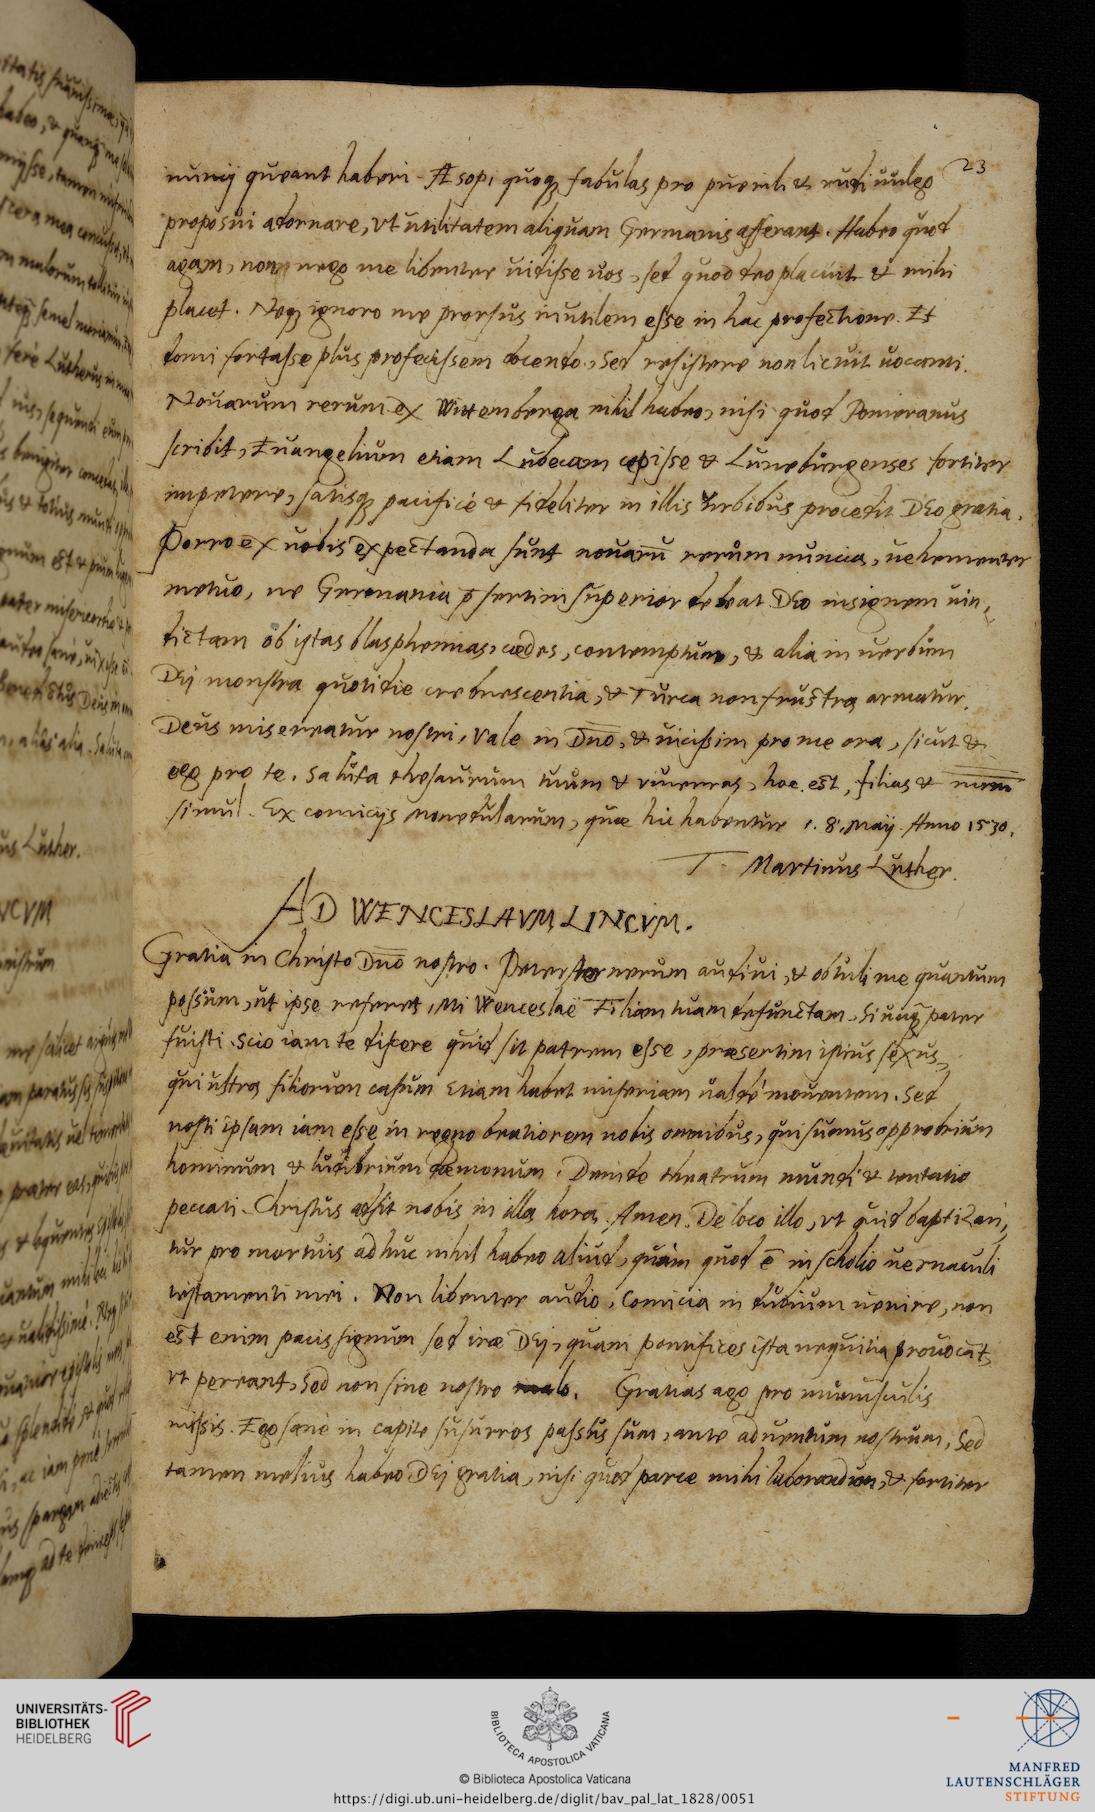 23
nuncij queant haberi. Æsopi quoq; fabulas pro puerili & rudi uulgo
proposui adornare, vt utilitatem aliquam Germanis afferant. Habeo quod
agam, non nego me libenter uidisse uos, sed quod deo placuit & mihi
placet. Neq; ignoro me prorsus inutilem esse in hac profectione. Et
domi fortasse plus profecissem docendo, sed resistere non licuit uocanti.
Nouarum rerum ex Wittemberga nihil habeo, nisi quod Pomeranus
scribit, Euangelium etiam Lubecam cepisse & Luneburgenses fortiter
impetere, satisq; pacificè & fideliter in illis Vrbibus procedit DEO gratia.
Porro ex uobis expectanda sunt nouarū rerum nuncia, uehementer
metuo, ne Germania p̄sertim superior debeat DEO insignem uin-
dictam ob istas blasphemias, cædes, contemptum, & alia in uerbum
DEj monstra quotidie crebrescentia, & Turca non frustra armatur.
Deus misereatur nostri, Vale in Dn̄o, & uicissim pro me ora, sicut &
ego pro te. Saluta thesaurum tuum & viuerras, hoc. est, filias &
simul. Ex comicijs monedularum, quæ hic habentur 1. 8. Maij. Anno 1530.
T. Martinus Luther.
AD WENCESLAVM LINCVM.
Gratia in Christo Dn̄o nostro. Peter audiui, & obtuli me quantum
possum, ut ipse referet, Mi Wenceslaë Filiam tuam defunctam. Si unq̄ pater
fuisti. Scio iam te discere quid sit patrem esse, præsertim istius sexus,
qui ultra filiorum casum etiam habet miseriam ualdè mouentem. Sed
nosti ipsam iam esse in regno beatiorem nobis omnibus, qui sumus opprobrium
hominum & ludibrium dæmonum. Deinde theatrum mundi & tentatio
peccati. Christus adsit nobis in illa hora. Amen. De loco illo, vt quid baptizan,
tur pro mortuis adhuc nihil habeo aliud, quàm quod ē in scholio uernaculi
testamenti mei. Non libenter audio, Comicia in dubium uenire, non
est enim pacis signum sed iræ DEj, quam pontifices ista nequitia prouocāt,
vt pereant, Sed non sine nostro malo. Gratias ago pro munusculis
missis. Ego sanè in capite susurros passus sum, ante aduentum nostrum, Sed
tamen melius habeo DEj gratia, nisi quod parce mihi laborandum, & fortiter
UNIVERSITÄTS-
BIBLIOTHEK
HEIDELBERG
BIBLIOTECA APOSTOLICA VATICANA
© Biblioteca Apostolica Vaticana
https://digi.ub.uni-heidelberg.de/diglit/bav_pal_lat_1828/0051
MANFRED
LAUTENSCHLÄGER
STIFTUNG